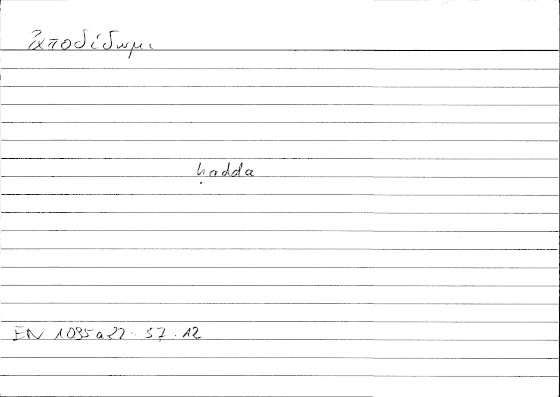 ἀποδίδωμι
ḥadda
EN 1095a22 . 57.12